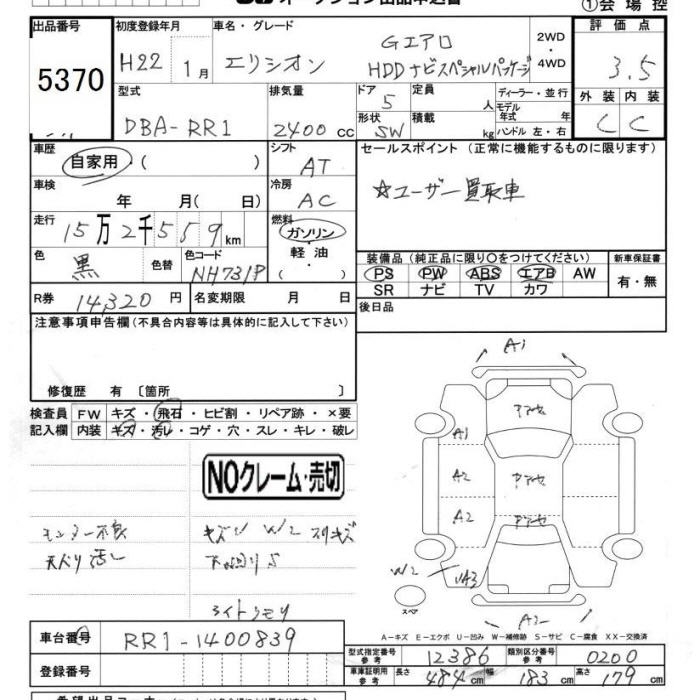 ①会場控
出品番号 初度登録年月 車名・グレード 評価点
5370
H22 1月 エリシオン
Gエアロ
HDDナビスペシャルパッケージ
2WD
・
4WD
3.5
型式 排気量 ドア 定員 ディーラー・並行
DBA-RR1 2400 cc 5 人
モデル年式 年
外装 内装
形状 積載
SW kg ハンドル 左・右
C C
車歴 シフト セールスポイント (正常に機能するものに限ります)
自家用・( ) AT
☆ユーザー買取車
車検 冷房
年 月( 日) AC
走行 燃料
15万2千559km ガソリン・
軽油・
( )
色 色替 色コード
黒 NH731P
装備品 (純正品に限り○をつけてください) 新車保証書
PS PW ABS エアB AW
SR ナビ TV カワ
有・無
R券 14,320円 名変期限 月 日
後日品
注意事項申告欄 (不具合内容等は具体的に記入して下さい)
修復歴 有 〔箇所 〕
検査員 FW キズ・飛石・ヒビ割・リペア跡・×要
記入欄 内装 キズ・汚レ・コゲ・穴・スレ・キレ・破レ
NOクレーム・売切
モニター不良 キズ W2 スリキズ
天バリ汚レ
ライトクモリ
A1
アセ
A1
A2
アセ
A2
アセ
W2
A3
スペア
A2
A-キズ E-エクボ U-凹み W-補修跡 S-サビ C-腐食 XX-交換済
車台番号 RR1-1400839
型式指定番号参考 12386 類別区分番号参考 0200
登録番号
車庫証明用参考 長さ 484cm 幅 183cm 高さ 179cm